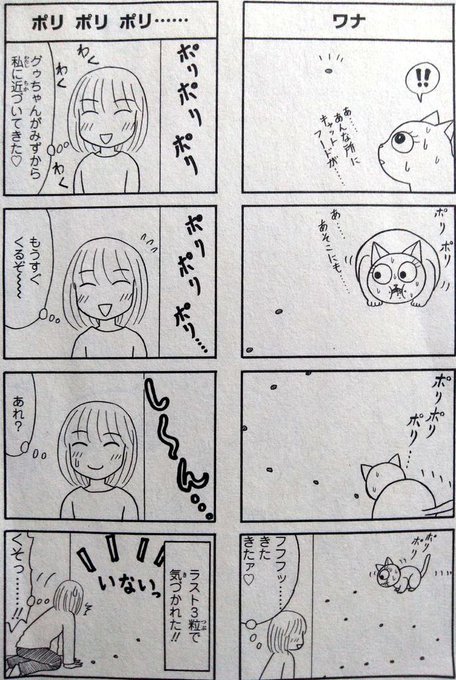 ワナ
!!
あ……
あんな所に
キャット
フードが……
ポリ
ポリ
あ……
あそこにも……
ポリ
ポリ
ポリ…
ポリ
ポリ
フフフッ……
きた
きたァ♡
ポリ ポリ ポリ……
ポリ
ポリ
ポリ
わく
わく
わく
グゥちゃんがみずから
私に近づいてきた♡
ポリ
ポリ
ポリ…
もうすぐ
くるぞ〜〜
し〜ん…
あれ？
ラスト3粒で
気づかれた!!
いないっ
くそっ……!!